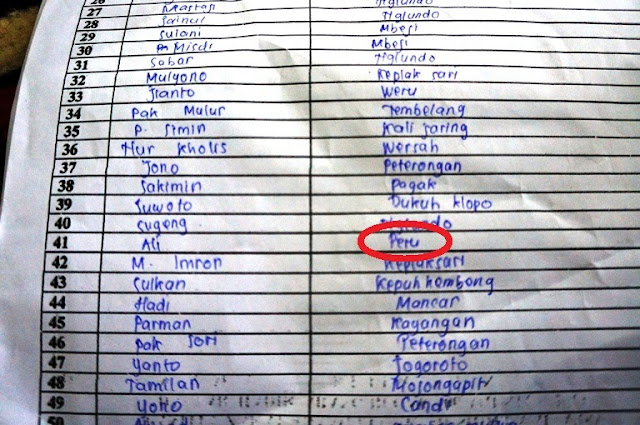 27 Mastesi Nglundo
28 Sainul Nglundo
29 Sulani Mbesi
30 Misdi Mbesi
31 Sobar Nglundo
32 Mulyono Keplak sari
33 Jianto Weru
34 Pak Mulur Tembelang
35 P. Simin Kali Jaring
36 Nur Kholis Wersah
37 Jono Peterongan
38 Sakimin Pagak
39 Suwoto Dukuh Klopo
40 Sugeng Nglundo
41 Ali Peru
42 M. Imron Keplaksari
43 Sulkan Kepuh kembang
44 Hadi Mancar
45 Parman Kayangan
46 Pak Sori Peterongan
47 Yanto Jogoroto
48 Tamilan Mojongapit
49 Yono Candi
50